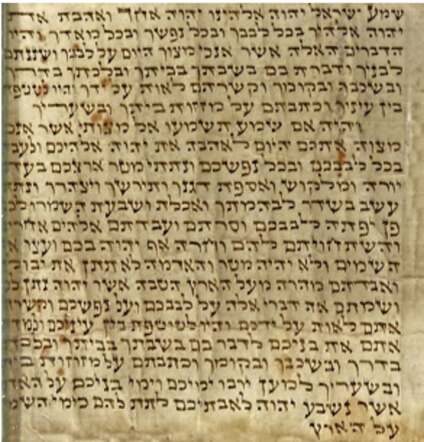 שמע ישראל יהוה אלהינו יהוה אחד ואהבת את
יהוה אלהיך בכל לבבך ובכל נפשך ובכל מאדך והיו
הדברים האלה אשר אנכי מצוך היום על לבבך ושננתם
לבניך ודברת בם בשבתך בביתך ובלכתך בדרך
ובשכבך ובקומך וקשרתם לאות על ידך והיו לטטפת
בין עיניך וכתבתם על מזזות ביתך ובשעריך
והיה אם שמע תשמעו אל מצותי אשר אנכי
מצוה אתכם היום לאהבה את יהוה אלהיכם
בכל לבבכם ובכל נפשכם ונתתי מטר ארצכם
יורה ומלקוש ואספת דגנך ותירשך ויצהרך
עשב בשדך לבהמתך ואכלת ושבעת השמרו
פן יפתה לבבכם וסרתם ועבדתם אלהים
והשתחויתם להם וחרה אף יהוה בכם ועצר
השמים ולא יהיה מטר והאדמה לא תתן את
ואבדתם מהרה מעל הארץ הטבה אשר יהוה נתן
ושמתם את דברי אלה על לבבכם ועל נפשכם
אתם לאות על ידכם והיו לטוטפת בין עיניכם
אתם את בניכם לדבר בם בשבתך בביתך
בדרך ובשכבך ובקומך וכתבתם על מזוזות
ובשעריך למען ירבו ימיכם וימי בניכם על
אשר נשבע יהוה לאבתיכם לתת להם כימי
על הארץ